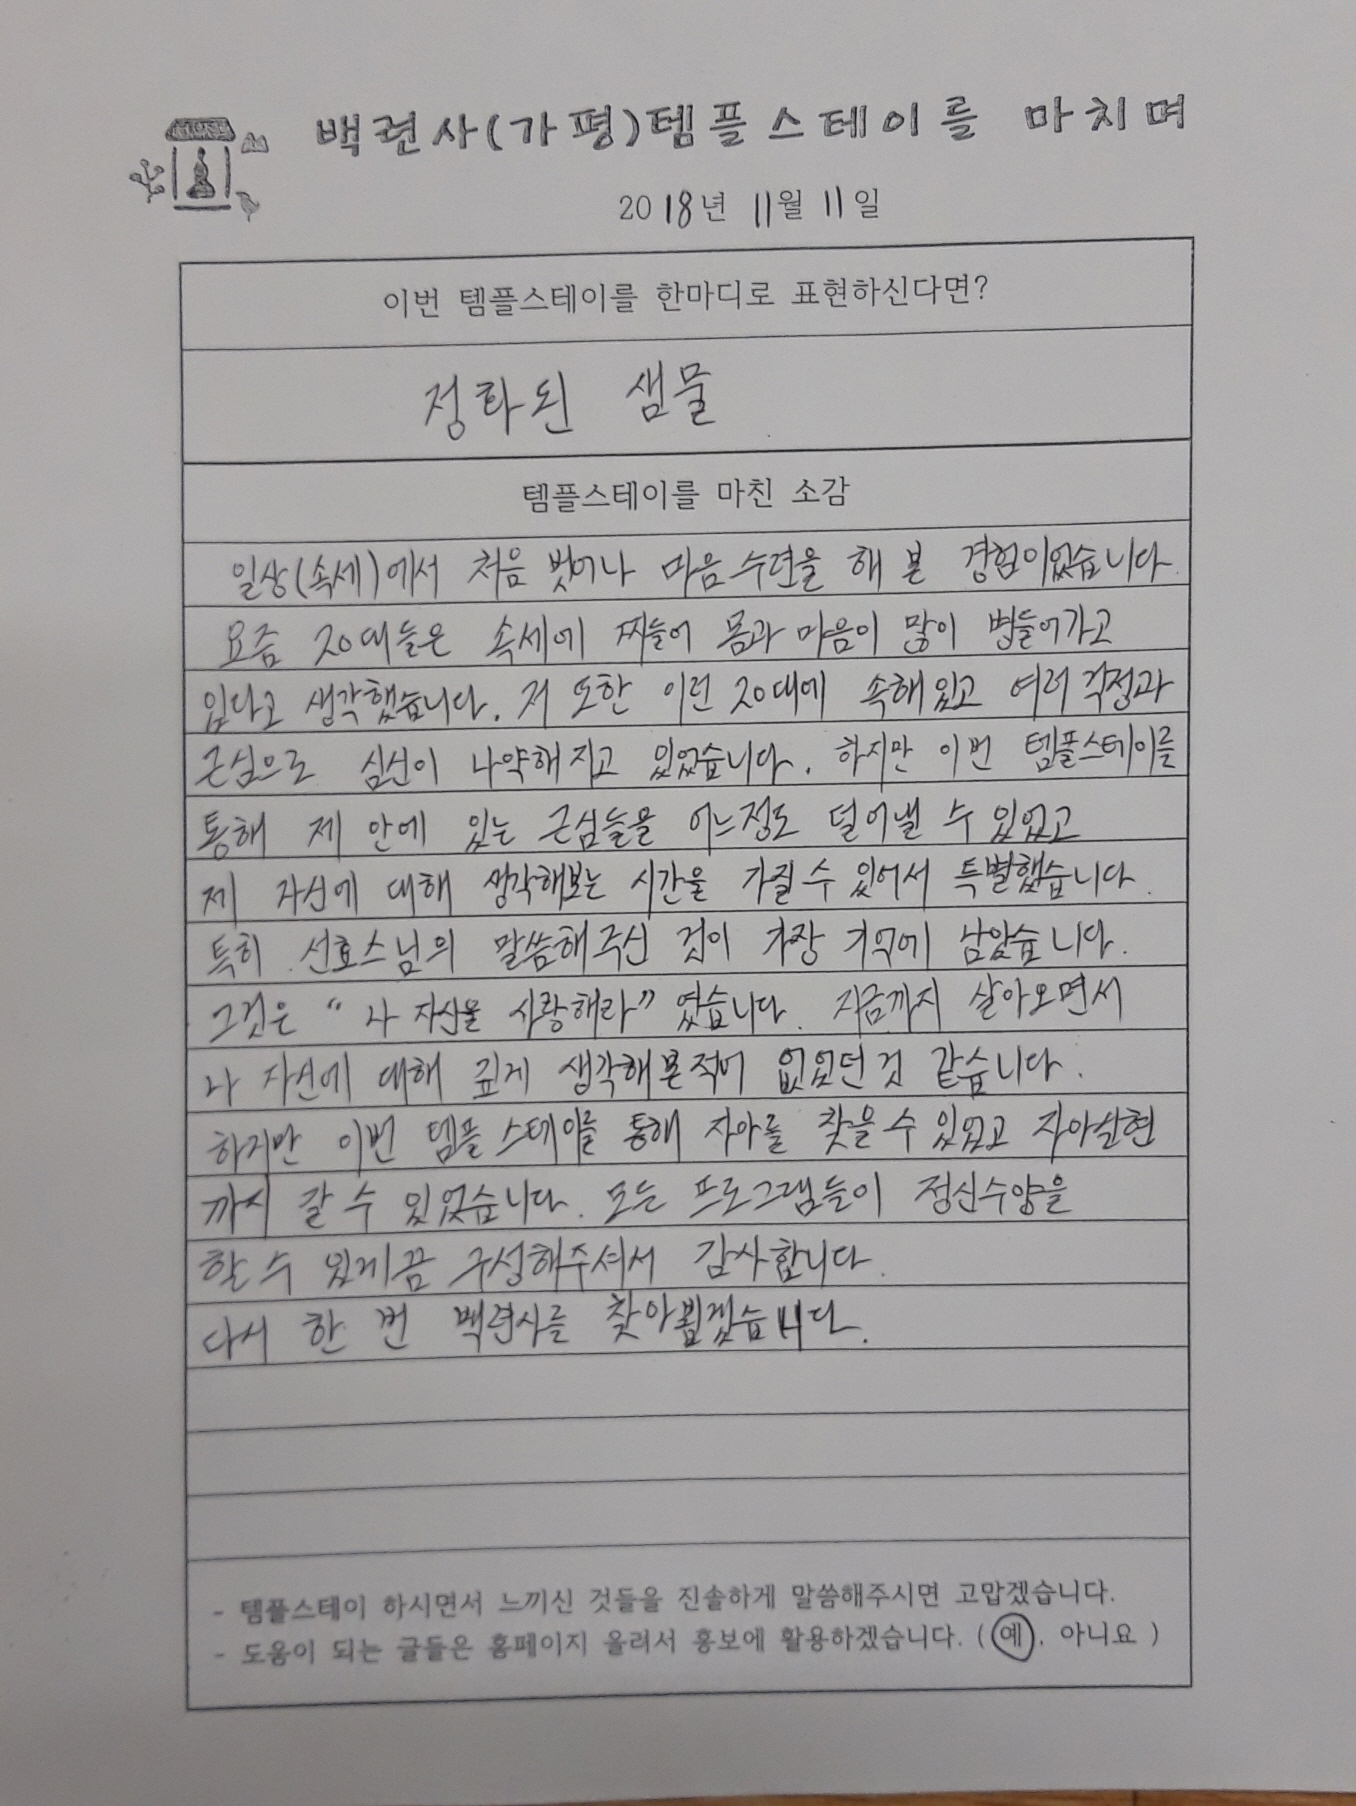 백련사(가평)템플스테이를 마치며
2018년 11월 11일
이번 템플스테이를 한마디로 표현하신다면?
정화된 샘물
템플스테이를 마친 소감
일상(속세)에서 처음 벗어나 마음수련을 해 본 경험이었습니다.
요즘 20대들은 속세에 찌들어 몸과 마음이 많이 병들어가고
있다고 생각했습니다. 저 또한 이런 20대에 속해있고 여러 걱정과
근심으로 심신이 나약해지고 있었습니다. 하지만 이번 템플스테이를
통해 제 안에 있는 근심들을 어느정도 덜어낼 수 있었고
제 자신에 대해 생각해보는 시간을 가질 수 있어서 특별했습니다.
특히 선효스님의 말씀해주신 것이 가장 기억에 남았습니다.
그것은 "나 자신을 사랑해라" 였습니다. 지금까지 살아오면서
나 자신에 대해 깊게 생각해본적이 없었던것 같습니다.
하지만 이번 템플스테이를 통해 자아를 찾을 수 있었고 자아실현
까지 갈 수 있었습니다. 모든 프로그램들이 정신수양을
할 수 있게끔 구성해주셔서 감사합니다.
다시 한 번 백련사를 찾아뵙겠습니다.
- 템플스테이 하시면서 느끼신 것들을 진솔하게 말씀해주시면 고맙겠습니다.
- 도움이 되는 글들은 홈페이지 올려서 홍보에 활용하겠습니다. ( 예, 아니요 )